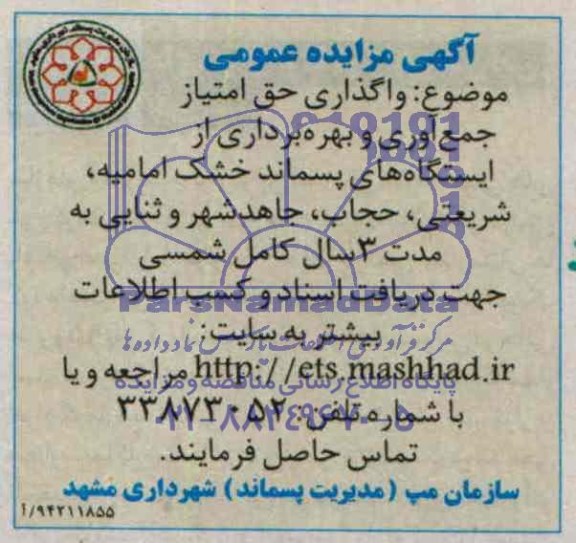 آگهی مزایده عمومی
موضوع: واگذاری حق امتیاز
جمع‌آوری و بهره‌برداری از
ایستگاه‌های پسماند خشک امامیه،
شریعتی، حجاب، جاهدشهر و ثنایی به
مدت ۳ سال کامل شمسی
جهت دریافت اسناد و کسب اطلاعات
ParsNamadData
بیشتر به سایت:
مرکز فرآوری اطلاعات پارس نماد داده‌ها
http://ets.mashhad.ir مراجعه و یا
پایگاه اطلاع رسانی مناقصه و مزایده
با شماره تلفن: ۳۳۸۷۳۰۵۲
۰۲۱-۸۸۳۴۹۶۷۰-۵
تماس حاصل فرمایند.
سازمان مپ (مدیریت پسماند) شهرداری مشهد
۹۴۲۱۱۸۵۵/آ